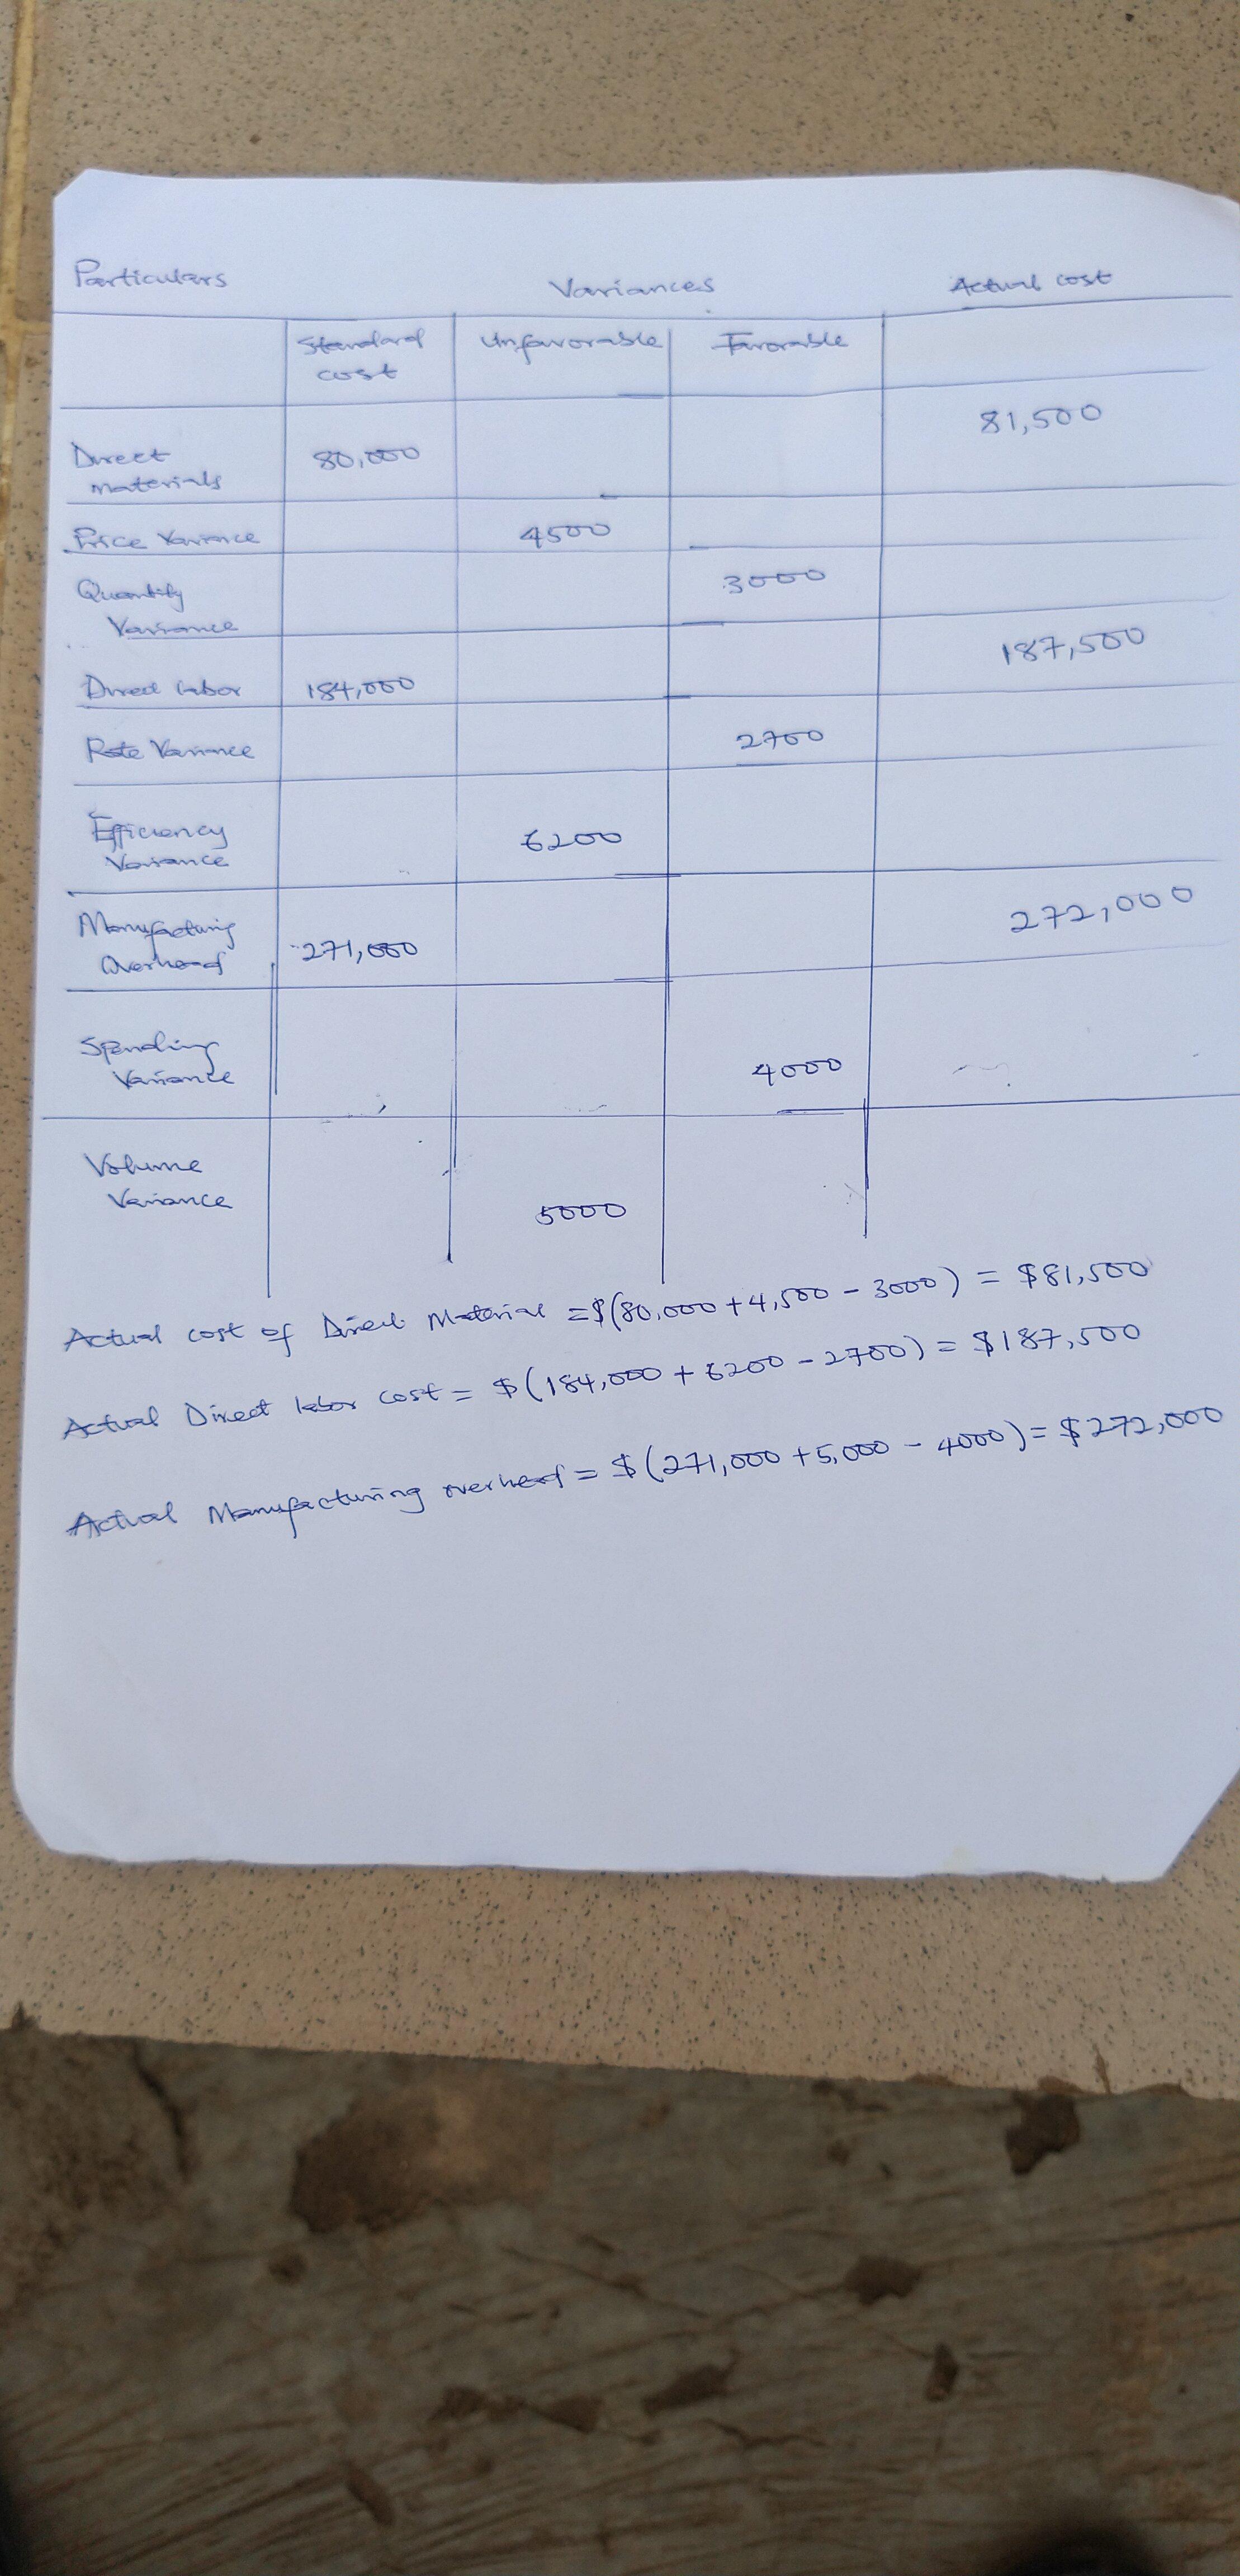 Particulars Variances Actual cost
Standard Unfavorable Favorable
cost
81,500
Direct 80,000
materials
Price Variance 4500
Quantity 3000
Variance
187,500
Direct labor 184,000
Rate Variance 2700
Efficiency 6200
Variance
272,000
Manufacturing
Overhead 271,000
Spending
Variance 4000
Volume
Variance 5000
Actual cost of Direct Material = $(80,000 + 4,500 - 3000) = $81,500
Actual Direct labor cost = $(184,000 + 6200 - 2700) = $187,500
Actual Manufacturing overhead = $(271,000 + 5,000 - 4000) = $272,000